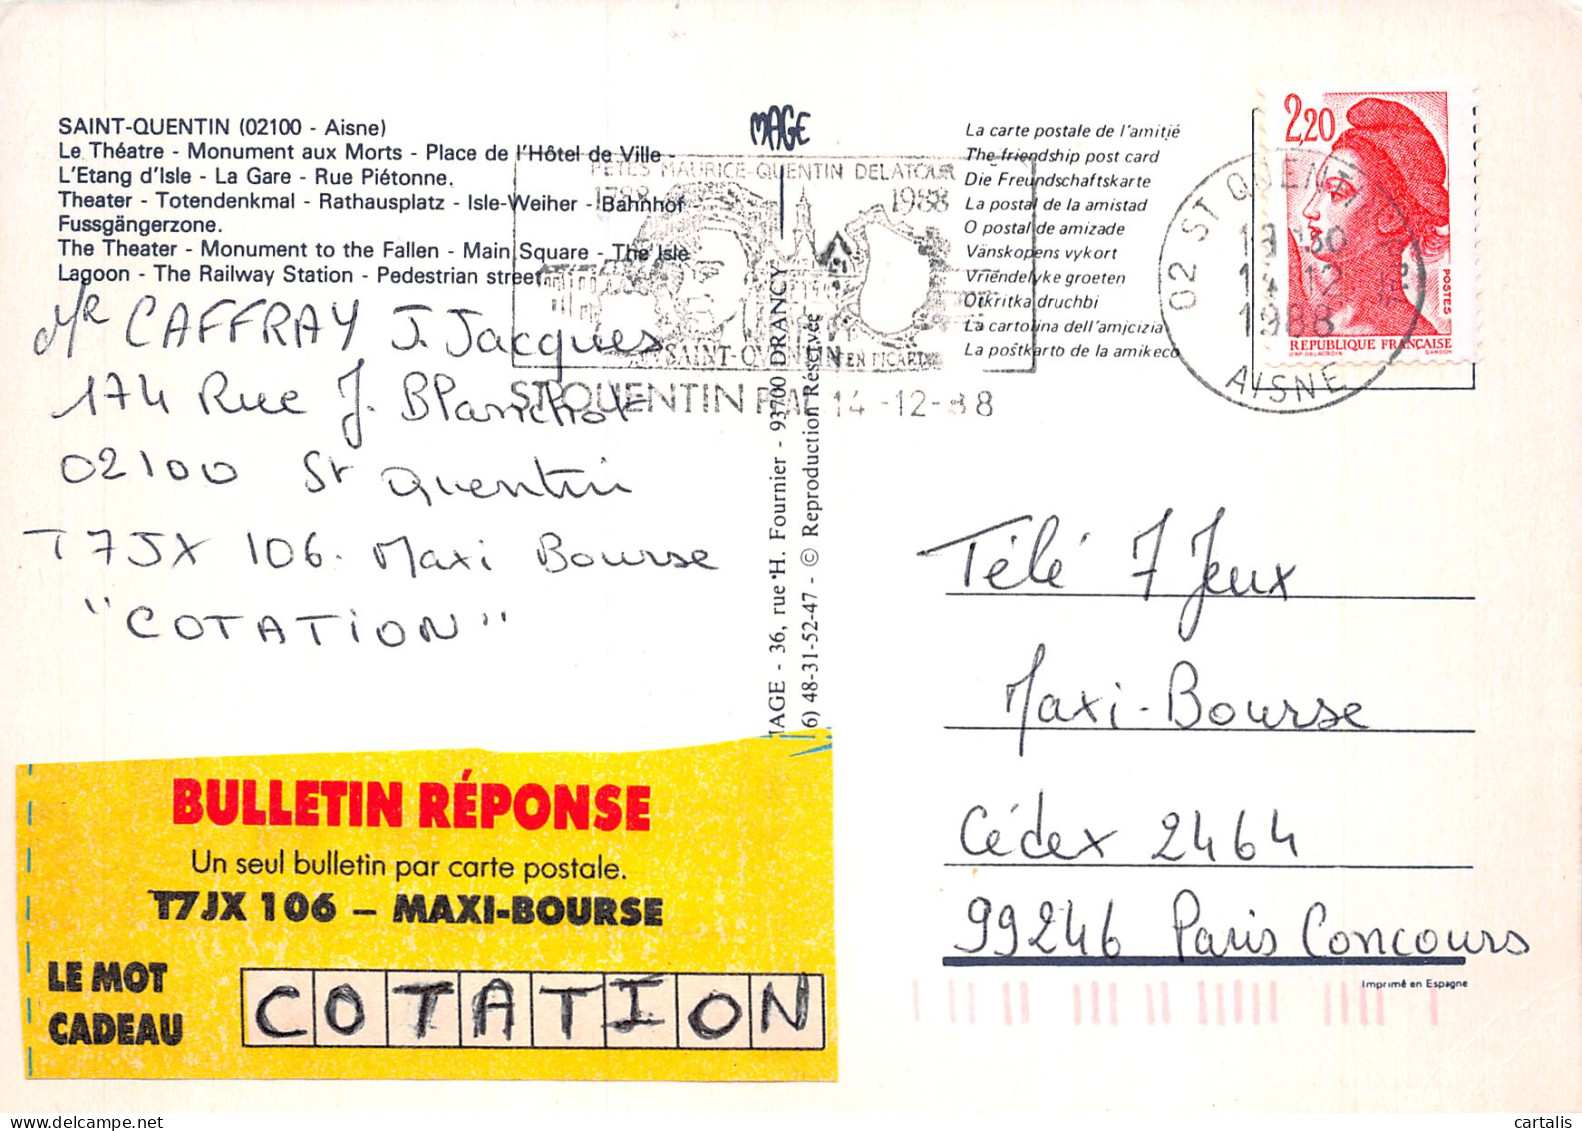 SAINT-QUENTIN (02100 - Aisne)
Le Théatre - Monument aux Morts - Place de l'Hôtel de Ville -
L'Etang d'Isle - La Gare - Rue Piétonne.
Theater - Totendenkmal - Rathausplatz - Isle-Weiher - Bahnhof -
Fussgängerzone.
The Theater - Monument to the Fallen - Main Square - The Isle
Lagoon - The Railway Station - Pedestrian street
MAGE
FETES MAURICE-QUENTIN DELATOUR
1788 1988
SAINT-QUENTIN EN PICARDIE
ST QUENTIN 14-12-88
La carte postale de l'amitié
The friendship post card
Die Freundschaftskarte
La postal de la amistad
O postal de amizade
Vänskopens vykort
Vriendelyke groeten
Otkritka druchbi
La cartolina dell'amicizia
La poŝtkarto de la amikeco
2,20
POSTES
REPUBLIQUE FRANÇAISE
D'AP. DELACROIX GANDON
02 ST QUENTIN
14-12
1988
AISNE
Mr CAFFRAY J. Jacques
174 Rue J. Blanchot
02100 St Quentin
T7JX 106. Maxi Bourse
"COTATION"
IAGE - 36, rue H. Fournier - 93700 DRANCY
6) 48-31-52-47 - © Reproduction Réservée
Télé 7 Jeux
Maxi-Bourse
Cédex 2464
99246 Paris Concours
Imprimé en Espagne
BULLETIN RÉPONSE
Un seul bulletin par carte postale.
T7JX 106 – MAXI-BOURSE
LE MOT
CADEAU
COTATION
cartalis